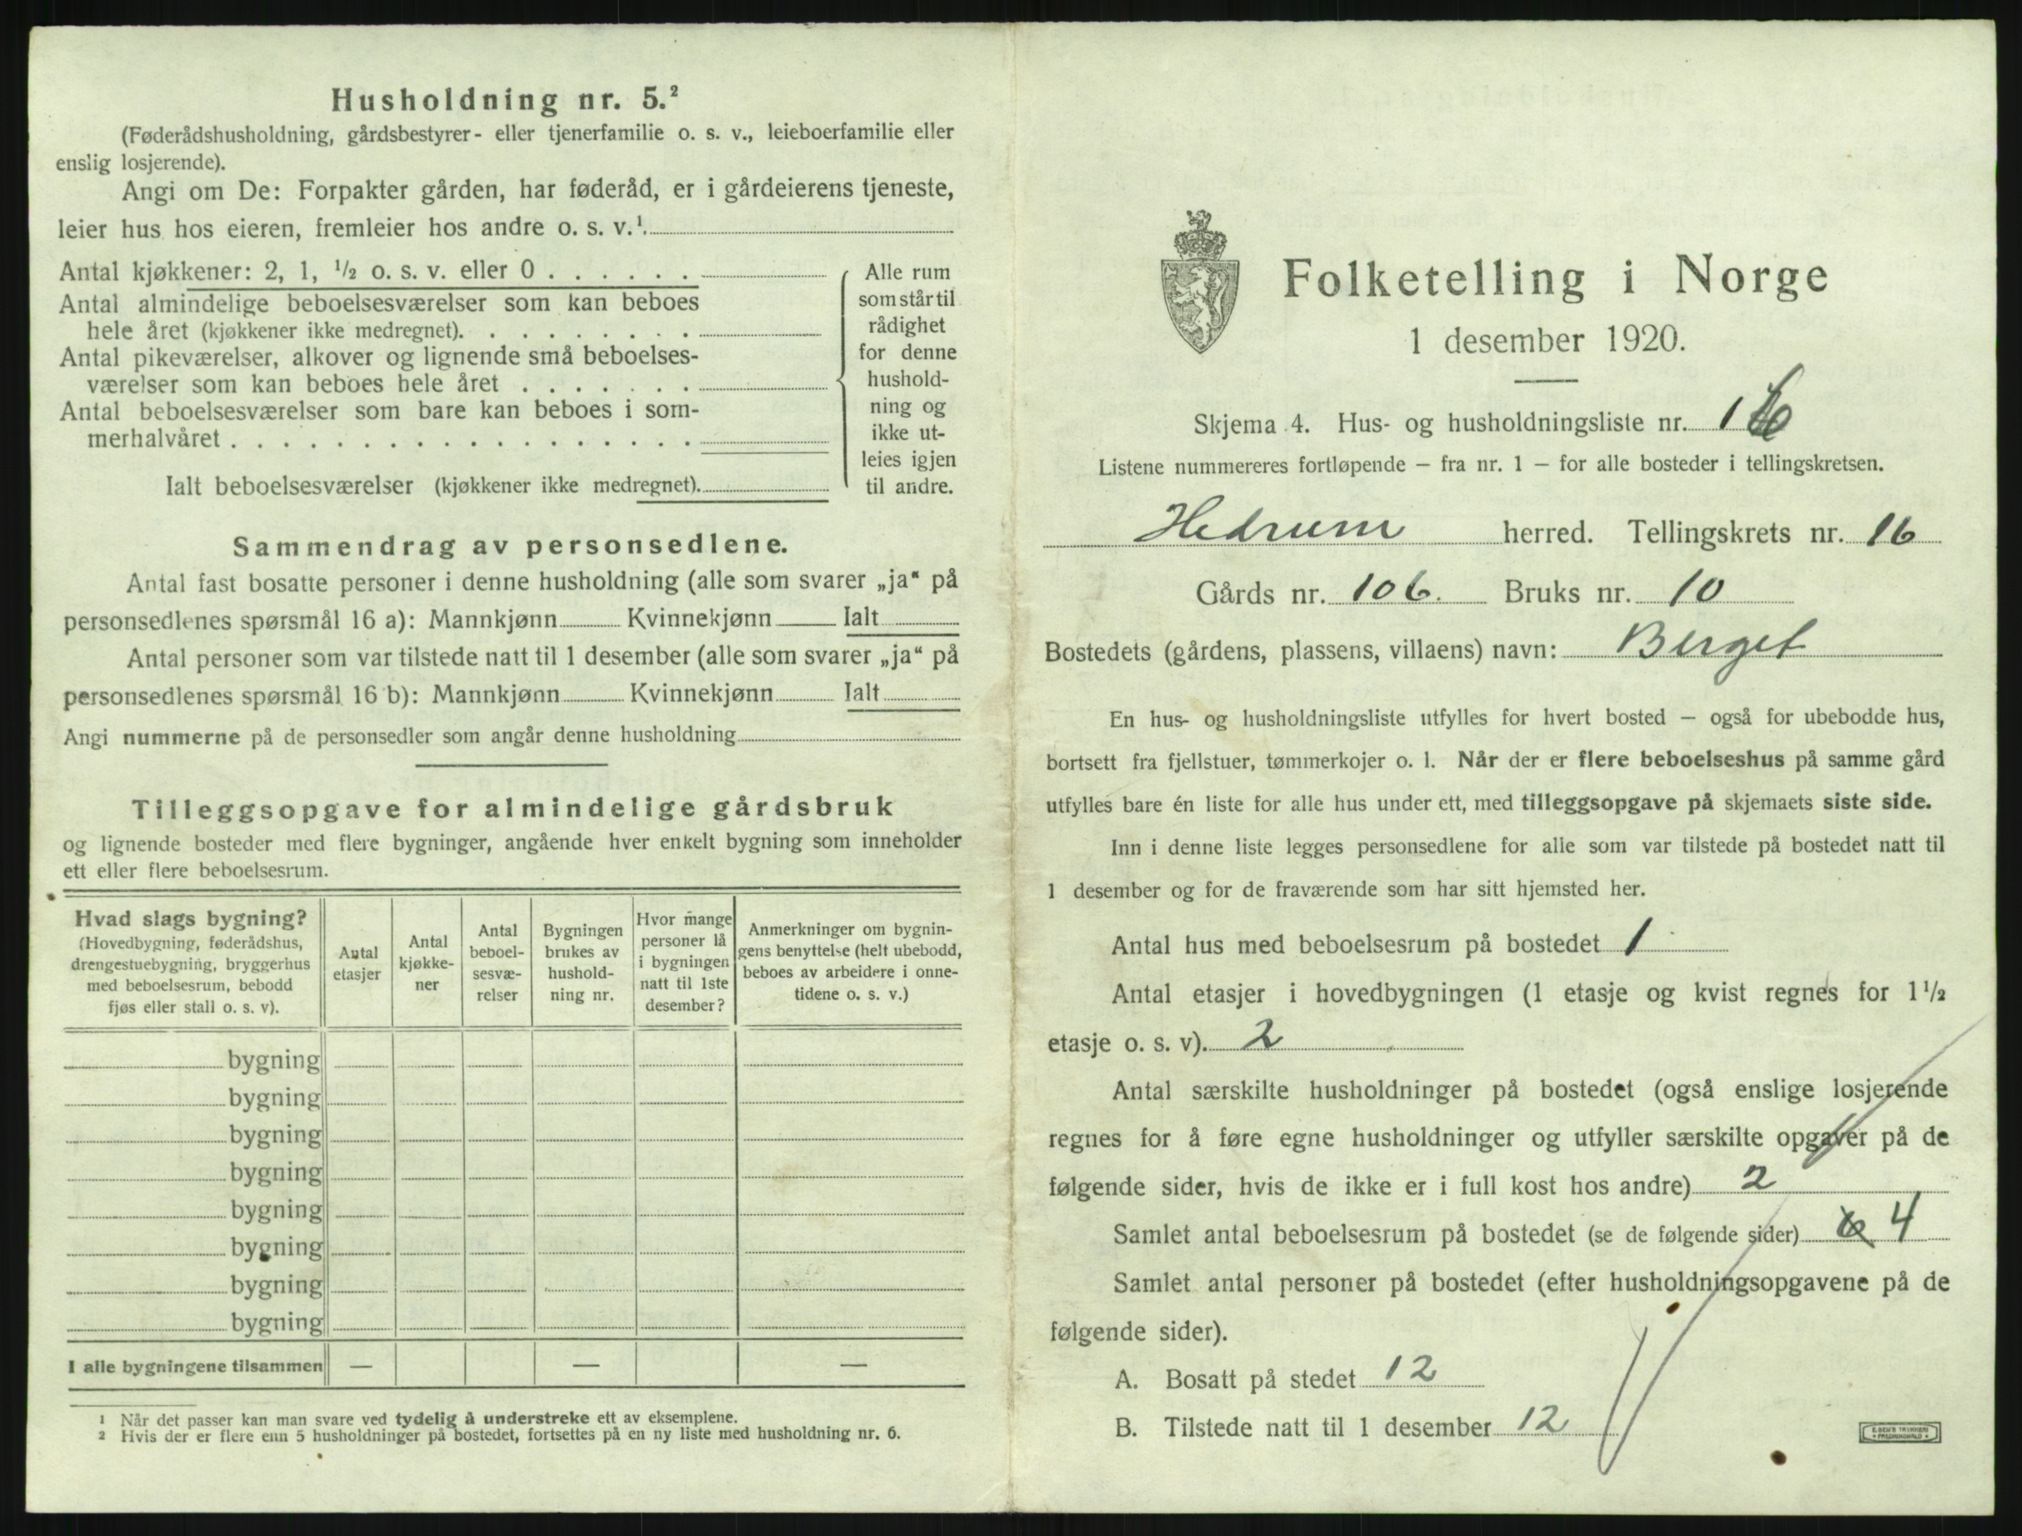 Husholdning nr. 5.²
(Føderådshusholdning, gårdsbestyrer- eller tjenerfamilie o. s. v., leieboerfamilie eller
enslig losjerende).
Angi om De: Forpakter gården, har føderåd, er i gårdeierens tjeneste,
leier hus hos eieren, fremleier hos andre o. s. v.¹
Antal kjøkkener: 2, 1, ½ o. s. v. eller 0 . . . . . .
Antal almindelige beboelsesværelser som kan beboes
hele året (kjøkkener ikke medregnet). . . . . . . .
Antal pikeværelser, alkover og lignende små beboelses-
værelser som kan beboes hele året . . . . . . .
Antal beboelsesværelser som bare kan beboes i som-
merhalvåret . . . . . . . . . . . . . . . . . .
Ialt beboelsesværelser (kjøkkener ikke medregnet).
Alle rum
som står til
rådighet
for denne
hushold-
ning og
ikke ut-
leies igjen
til andre.
Sammendrag av personsedlene.
Antal fast bosatte personer i denne husholdning (alle som svarer „ja“ på
personsedlenes spørsmål 16 a): Mannkjønn Kvinnekjønn Ialt
Antal personer som var tilstede natt til 1 desember (alle som svarer „ja“ på
personsedlenes spørsmål 16 b): Mannkjønn Kvinnekjønn Ialt
Angi nummerne på de personsedler som angår denne husholdning
Tilleggsopgave for almindelige gårdsbruk
og lignende bosteder med flere bygninger, angående hver enkelt bygning som inneholder
ett eller flere beboelsesrum.
Hvad slags bygning?
(Hovedbygning, føderådshus,
drengestuebygning, bryggerhus
med beboelsesrum, bebodd
fjøs eller stall o. s. v).
Antal
etasjer
Antal
kjøkke-
ner
Antal
beboel-
sesvæ-
relser
Bygningen
brukes av
hushold-
ning nr.
Hvor mange
personer lå
i bygningen
natt til 1ste
desember?
Anmerkninger om bygnin-
gens benyttelse (helt ubebodd,
beboes av arbeidere i onne-
tidene o. s. v.)
bygning
bygning
bygning
bygning
bygning
bygning
bygning
bygning
I alle bygningene tilsammen — — —
¹ Når det passer kan man svare ved tydelig å understreke ett av eksemplene.
² Hvis der er flere enn 5 husholdninger på bostedet, fortsettes på en ny liste med husholdning nr. 6.
Folketelling i Norge
1 desember 1920.
Skjema 4. Hus- og husholdningsliste nr. 1
Listene nummereres fortløpende – fra nr. 1 – for alle bosteder i tellingskretsen.
Hedrum herred. Tellingskrets nr. 16
Gårds nr. 106. Bruks nr. 10
Bostedets (gårdens, plassens, villaens) navn: Berget
En hus- og husholdningsliste utfylles for hvert bosted – også for ubebodde hus,
bortsett fra fjellstuer, tømmerkojer o. l. Når der er flere beboelseshus på samme gård
utfylles bare én liste for alle hus under ett, med tilleggsopgave på skjemaets siste side.
Inn i denne liste legges personsedlene for alle som var tilstede på bostedet natt til
1 desember og for de fraværende som har sitt hjemsted her.
Antal hus med beboelsesrum på bostedet 1
Antal etasjer i hovedbygningen (1 etasje og kvist regnes for 1½
etasje o. s. v). 2
Antal særskilte husholdninger på bostedet (også enslige losjerende
regnes for å føre egne husholdninger og utfyller særskilte opgaver på de
følgende sider, hvis de ikke er i full kost hos andre) 2
Samlet antal beboelsesrum på bostedet (se de følgende sider) 6 4
Samlet antal personer på bostedet (efter husholdningsopgavene på de
følgende sider).
A. Bosatt på stedet 12
B. Tilstede natt til 1 desember 12